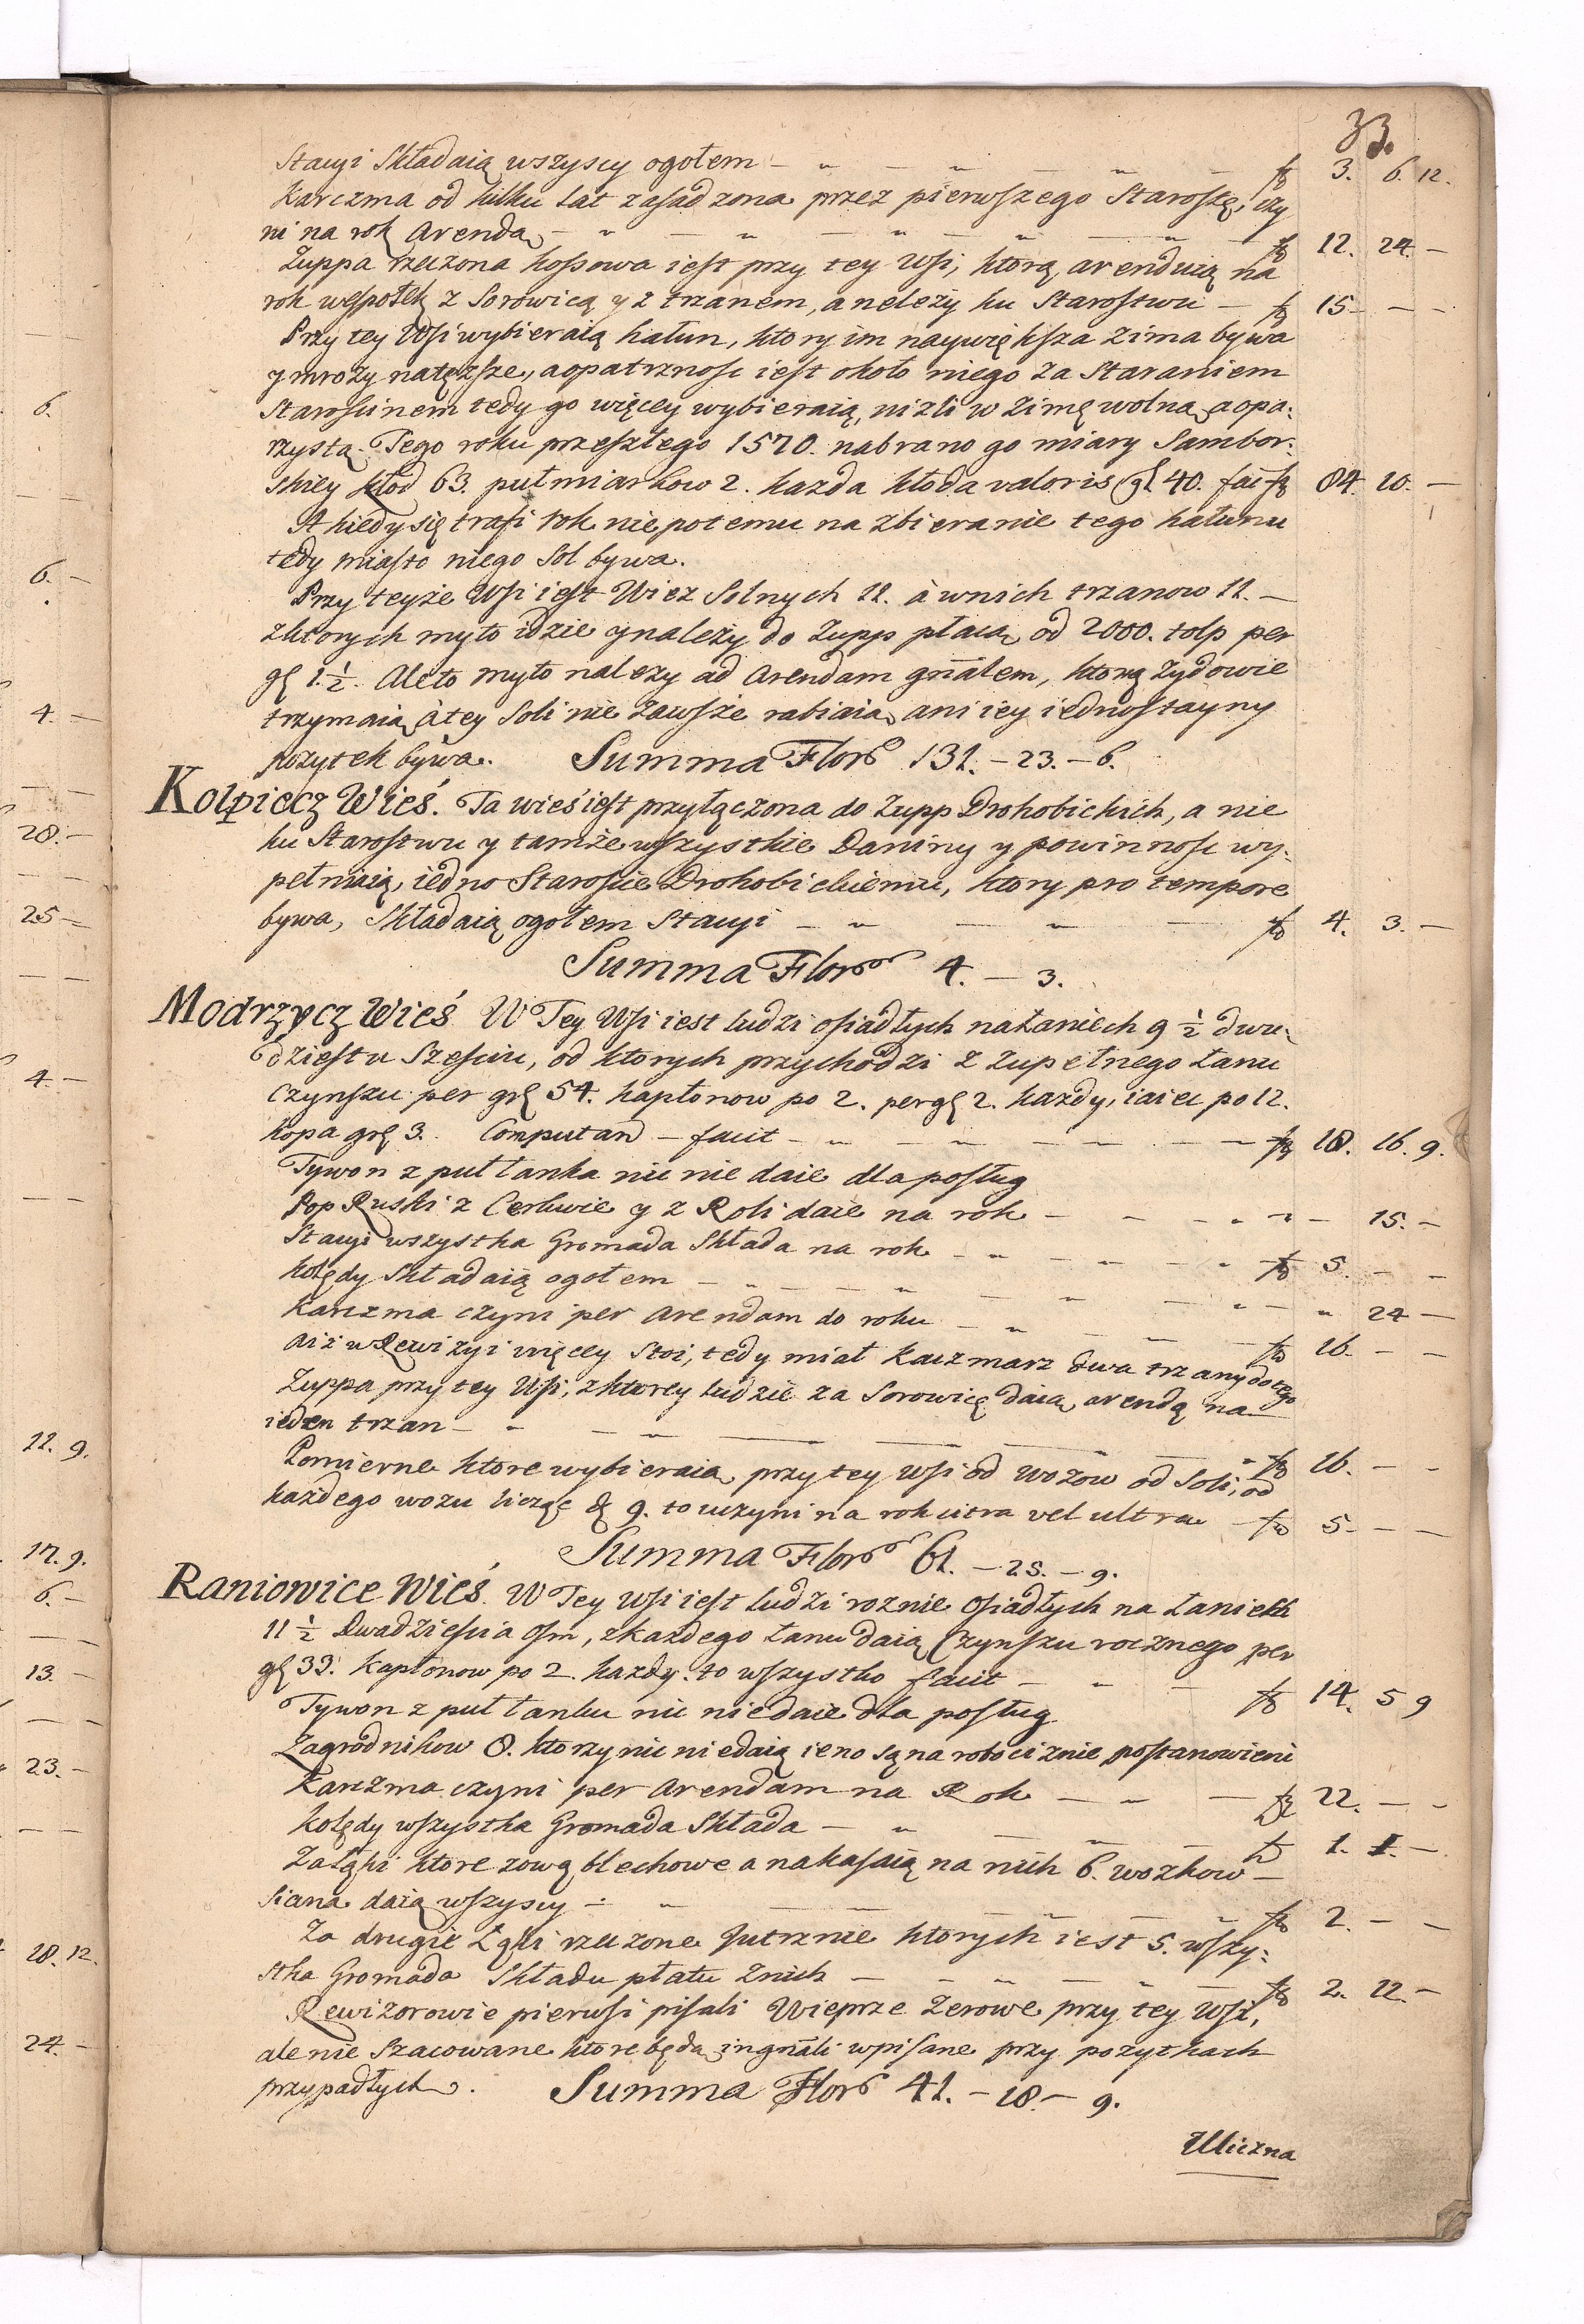 33.
Stacyi Składaią wszyscy ogołem — " — " — fl 3. 6. 12.
Karczma od kilku Lat zasadzona przez pierwszego Starostę, czy
ni na rok Arendą — " — " — " — fl 12. 24. —
Zuppa rzeczona Kossowa iest przy tey Wsi, ktorą arenduią na
rok wespołek z Sorowicą y z trzanem, a nelezy ku Starostwu — fl 15 — —
Przy tey Wsi wybieraią hałun, ktory im naywiększa Zima bywa
y mrozy natęzsze, a opatrznosc iest około niego Za Staraniem
Starościnem tedy go więcey wybieraią, nizli w Zimę wolną a opa:
rzystą. Tego roku przeszłego 1570. nabrano go miary Sambor:
skiey kłod 63. pułmiarkow 2. kazda kłoda valoris gł 40. facit fl 84. 20. —
A kiedy się trafi rok nie potemu na zbieranie tego hałunu
tedy miasto niego Sol bywa.
Przy teyże Wsi iest Wiez Solnych 11. à w nich trzanow 11. —
z ktorych myto idzie y nalezy do Zupp płacą od 2000. tołp per
gł 1. ½. Ale to myto nalezy ad Arendam gñalem, ktorą Zydowie
trzymaią à tey Soli nie zawsze rabiaią ani iey iednostayny
pozytek bywa. Summa Flor 131. — 23. — 6.
Kolpiecz Wieś. Ta wieś iest przyłączona do Zupp Drohobickich, a nie
ku Starostwu y tamże wszystkie Daniny y powinnosc wy:
pełniaią, iedno Starosc̨ie Drohobickiemu, ktory pro tempore
bywa, Składaią ogołem Stacyi — " — " — fl 4. 3. —
Summa Flor 4. — 3.
Modrzycz Wieś. W Tey Wsi iest ludzi osiadłych na Łaniech 9 ½ dwu:
dziestu Szesciu, od ktorych przychodzi z zupełnego Łanu
Czynszu per grł 54. kapłonow po 2. per gł 2. kazdy, iaiec po 12.
kopa grł 3. Computan — facit — " — " — fl 18. 16. 9.
Tywon z puł Łanka nic nie daie dla posług
Pop Ruski z Cerkwie y z Roli daie na rok — — — " — " — 15. —
Stacyi wszystka Gromada Składa na rok — " — fl 5. — —
Kolędy Składaią ogołem — " — " — " — " 24 —
Karczma czyni per Arendam do roku — " — " — fl 16. — —
Aiż w Rewizyi więcey Stoi, tedy miał Kaczmarz dwa trzany do tego
Zuppa przy tey Wsi, z ktorey ludzie za Sorowicę daią arendą na
ieden trzan — " — " — fl 16. — —
Pomierne ktore wybieraią przy tey Wsi od Wozow od Soli, od
każdego wozu licząc 9. to uczyni na rok citra vel ultra — fl 5. — —
Summa Flor 61. — 25. — 9.
Raniowice Wieś. W Tey Wsi iest Ludzi roznie Osiadłych na Łaniech
11 ½ Dwadziescia Osm, z kazdego Łanu daią Czynszu rocznego per
gł 33. Kapłonow po 2. kazdy. to wszystko facit — " — fl 14. 5 9
Tywon z puł Łanku nic nie daie dla posług
Zagrodnikow 8. ktorzy nic niedaią ieno są na robociznie postanowieni
Karczma czyni per Arendam na Rok — — — fl 22. — —
Kolędy wszystka Gromada Składa — " — " — fl 1. 1. —
Za Łąki ktore zową blechowe a nakasaią na nich 6. wozkow —
Siana daią wszyscy — " — — — fl 2. — —
Za drugie Łąki rzeczone Jutrznie ktorych iest 5. wszy:
stka Gromada Składu płatu Znich — — " — — fl 2. 12. —
Rewizorowie pierwsi pisali Wieprze Zerowe przy tey Wsi,
ale nie Szacowane ktore będą in gñali wpisane przy pozytkach
przypadłych. Summa Flor 41. — 18. — 9.
Uliczna